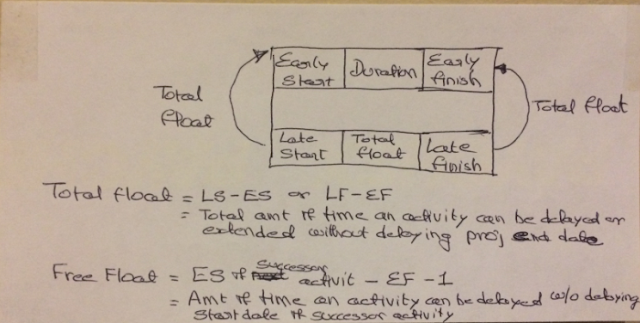 Early Start Duration Early finish
Total float
Total float
Late Start Total float Late finish
Total float = LS-ES or LF-EF
= Total amt of time an activity can be delayed or
extended without delaying proj end date
Free Float = ES of successor activit - EF -1
= Amt of time an activity can be delayed w/o delaying
Start date of successor activity